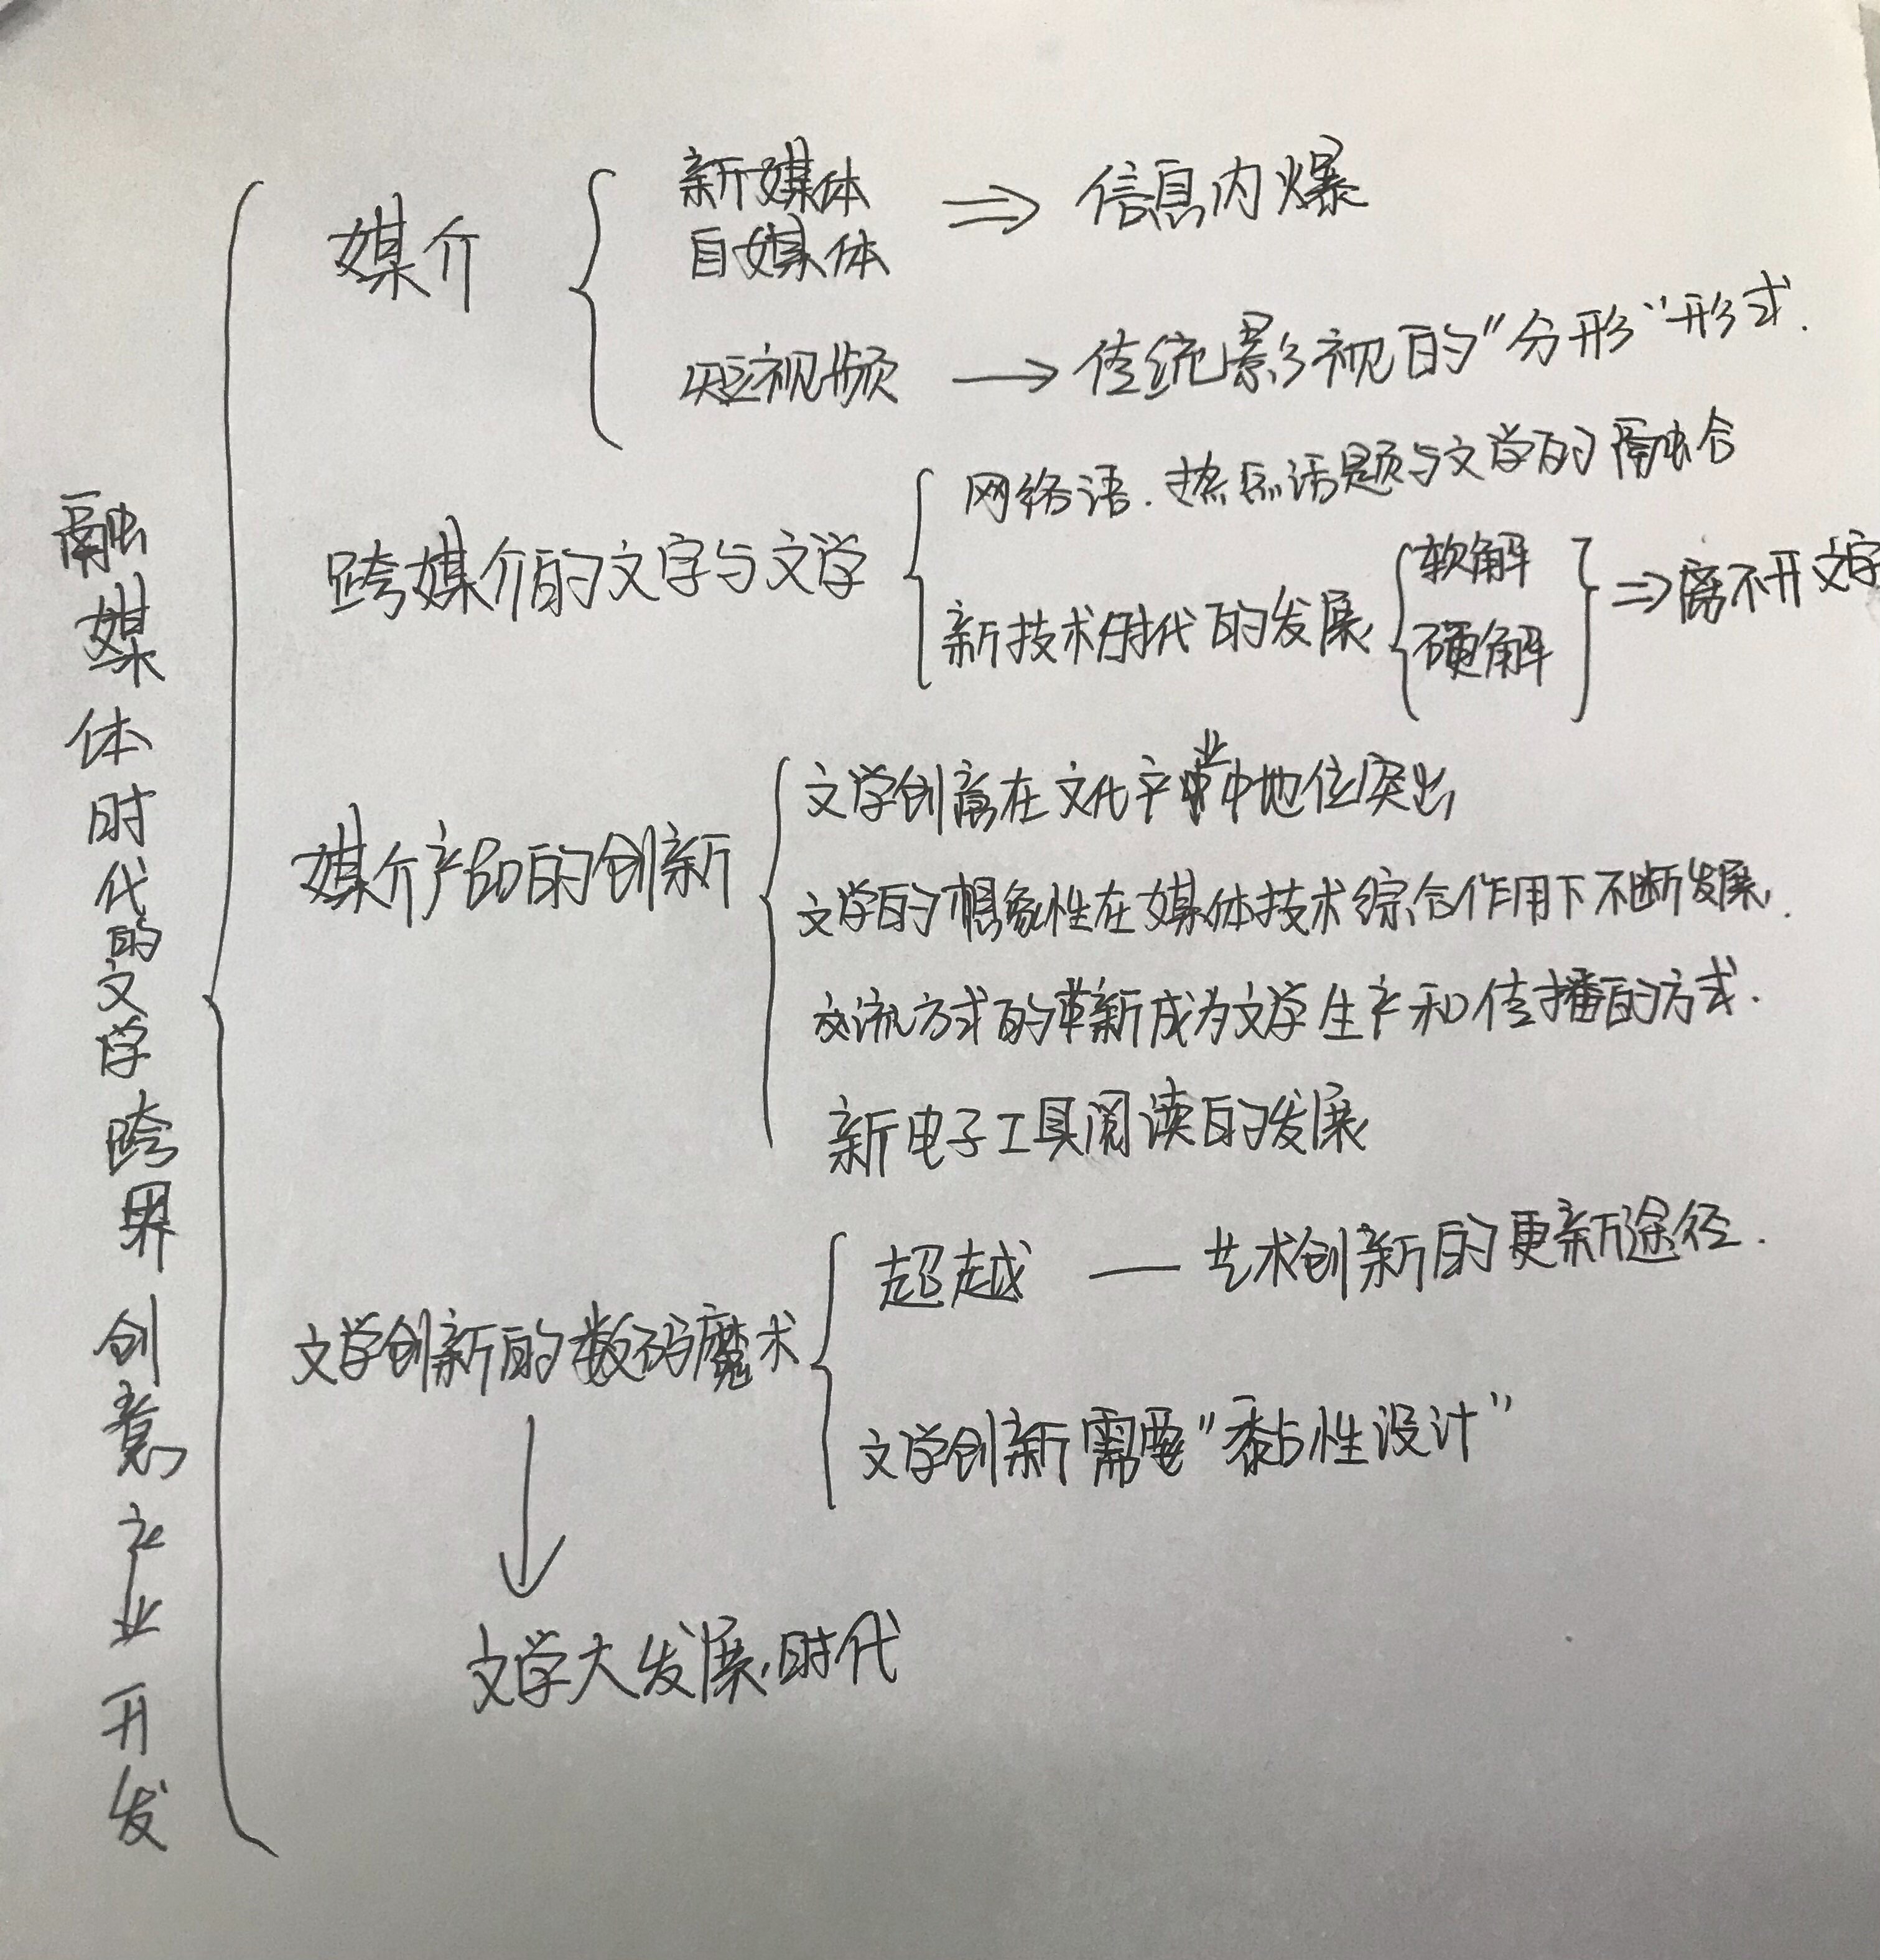 融媒体时代的文学跨界创意产业开发
媒介
新媒体
自媒体
⇒ 信息内爆
短视频 → 传统影视的"分形"形式.
跨媒介的文字与文学
网络语.热点话题与文学的融合
新技术时代的发展
软解
硬解
⇒离不开文字
媒介产品的创新
文学创意在文化产业中地位突出
文学的想象性在媒体技术综合作用下不断发展.
交流方式的革新成为文学生产和传播的方式.
新电子工具阅读的发展
文学创新的数码魔术
超越 — 艺术创新的更新途径.
文学创新需要"黏性设计"
文学大发展时代